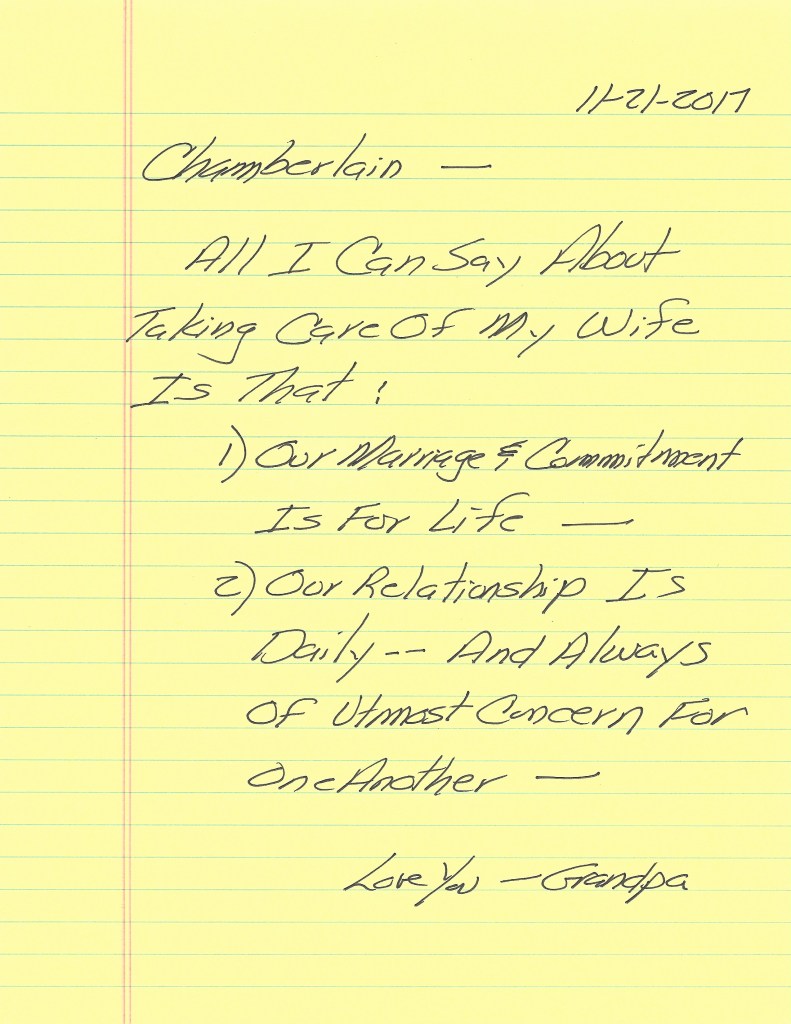 11-21-2017
Chamberlain —
All I Can Say About
Taking Care Of My Wife
Is That :
1) Our Marriage & Commitment
Is For Life —
2) Our Relationship Is
Daily -- And Always
Of Utmost Concern For
One Another —
Love You — Grandpa